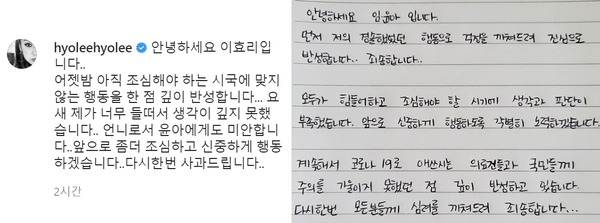 hyoleehyolee 안녕하세요 이효리입
니다..
어젯밤 아직 조심해야 하는 시국에 맞지
않는 행동을 한 점 깊이 반성합니다... 요
새 제가 너무 들떠서 생각이 깊지 못했
습니다.. 언니로서 윤아에게도 미안합
니다..앞으로 좀더 조심하고 신중하게 행동
하겠습니다..다시한번 사과드립니다..
2시간
안녕하세요 임윤아 입니다.
먼저 저의 경솔했었던 행동으로 걱정을 끼쳐드려 진심으로
반성합니다.. 죄송합니다..
모두가 힘들어하고 조심해야 할 시기에 생각과 판단이
부족했습니다. 앞으로 신중하게 행동하도록 각별히 노력하겠습니다.
계속해서 코로나 19로 애쓰시는 의료진들과 국민들께
주의를 기울이지 못했던 점 깊이 반성하고 있습니다.
다시한번 모든분들께 심려를 끼쳐드려 죄송합니다...